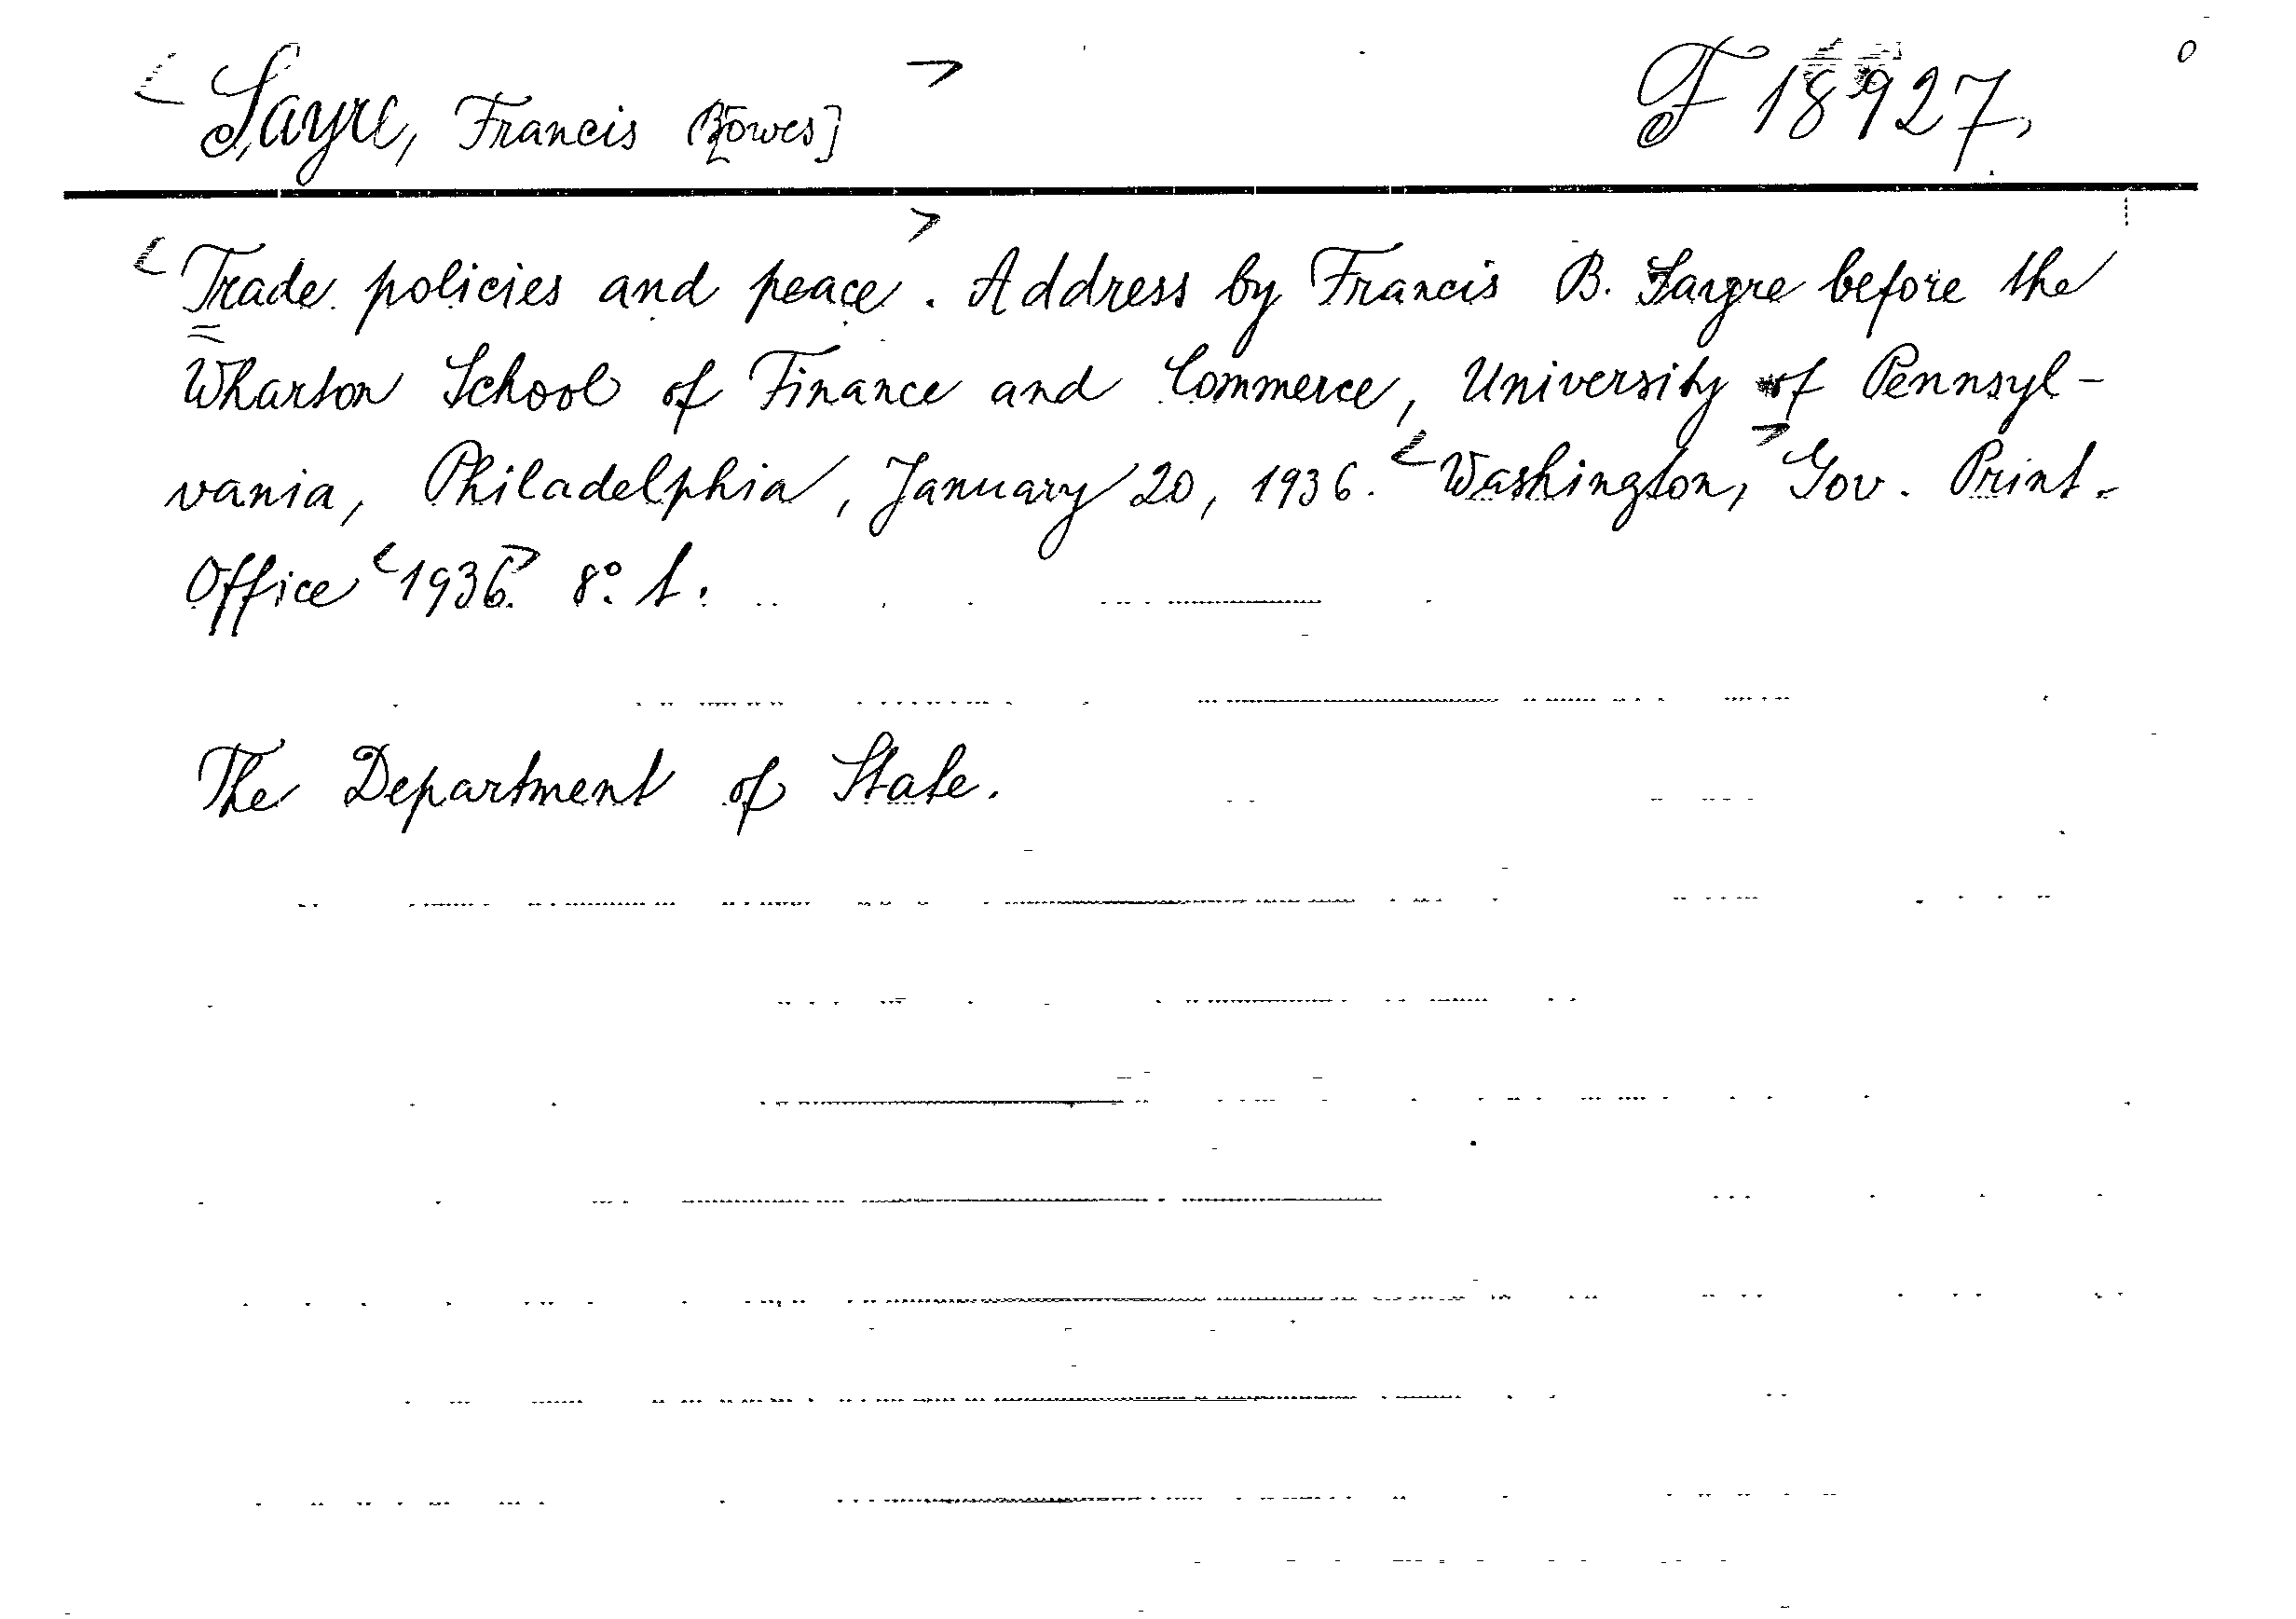 <Sayre, Francis [Bowes]> F 18927,
<Trade policies and peace>. Address by Francis B. Sayre before the
Wharton School of Finance and Commerce, University of Pennsyl-
vania, Philadelphia, January 20, 1936. <Washington,> Gov. Print.
Office <1936>. 8°. t.
The Department of State.